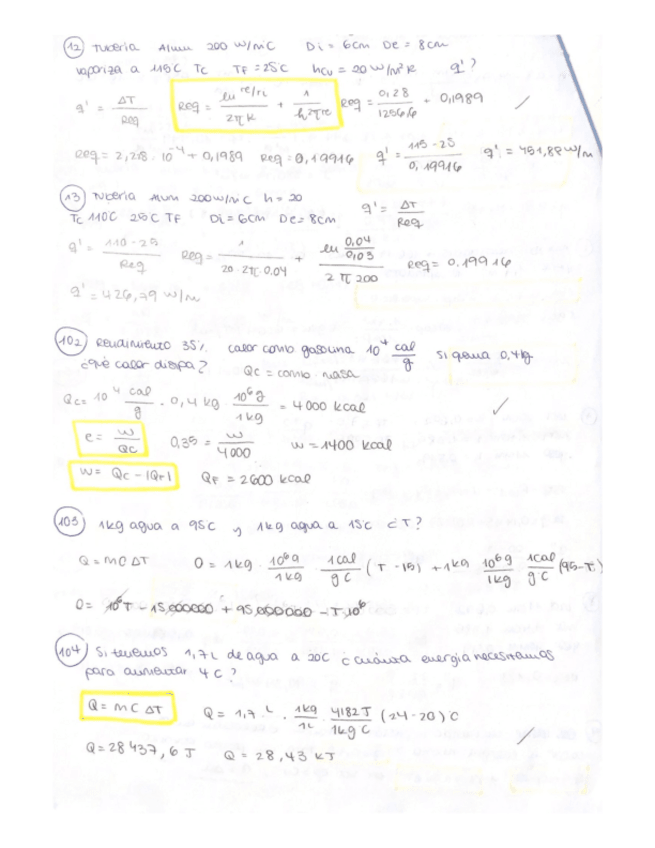 12 Tubería Alum 200 W/mC Di = 6cm De = 8cm
vaporiza a 115C Tc TF = 25C hcv = 20 W/m²K q' ?
q' = ΔT / Req Req = ln re/ri / 2πK + 1 / h2πre Req = 0,28 / 1256,6 + 0,1989
Req = 2,28 · 10⁻⁴ + 0,1989 Req = 0,19916 q' = 115 - 25 / 0,19916 q' = 451,88 W/m
13 Tubería Alum 200 W/mC h = 20
Tc 110C 25C TF Di = 6cm De = 8cm q' = ΔT / Req
q' = 110 - 25 / Req Req = 1 / 20 · 2π · 0.04 + ln 0,04/0,03 / 2π 200 Req = 0.19916
q' = 426,79 W/m
102 Rendimiento 35% calor comb gasolina 10⁴ cal/g si quema 0,4kg
¿qué calor disipa? Qc = comb · masa
Qc = 10⁴ cal/g · 0,4 kg · 10⁶g / 1kg = 4000 kcal
e = W / Qc 0,35 = W / 4000 W = 1400 kcal
W = Qc - |QF| QF = 2600 kcal
103 1kg agua a 95C y 1kg agua a 15C ¿T?
Q = MCΔT 0 = 1kg · 10⁶g / 1kg · 1cal / gC (T - 15) + 1kg 10⁶g / 1kg 1cal / gC (95-T)
0 = 10⁶T - 15,000000 + 95,000000 - T·10⁶
104 Si tenemos 1,7L de agua a 20C ¿cuánta energía necesitamos
para aumentar 4C?
Q = MCΔT Q = 1,7 L · 1kg / 1L · 4182J / 1kgC (24 - 20)C
Q = 28437,6 J Q = 28,43 kJ